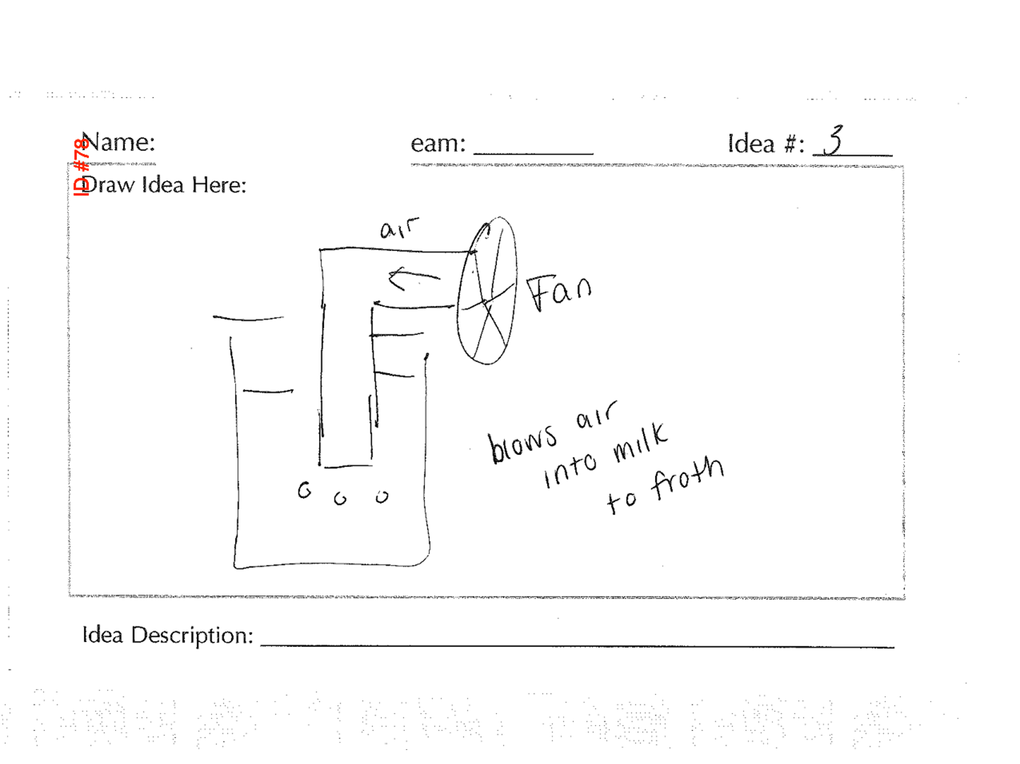 ID #78
Name:
eam:
Idea #: 3
Draw Idea Here:
air
Fan
blows air
into milk
to froth
Idea Description: